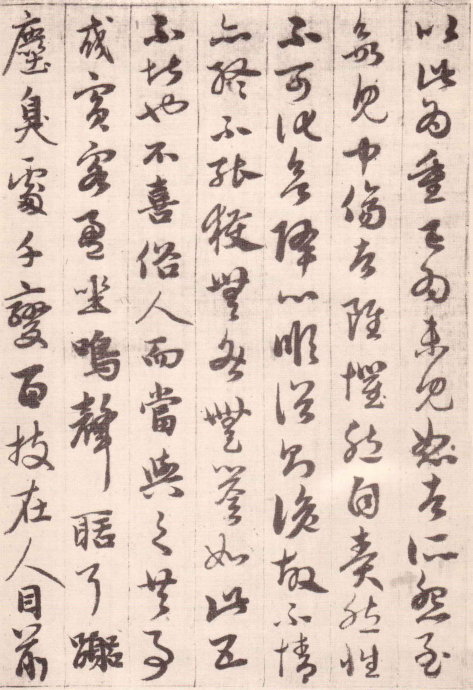 以此為重已為未見恕者所怨至
欲見中傷者雖懼然自責然性
不可化欲降心順俗則詭故不情
亦終不能獲無咎無譽如此五
不堪也不喜俗人而當與之共事
或賓客盈坐鳴聲聒耳囂
塵臭處千變百技在人目前